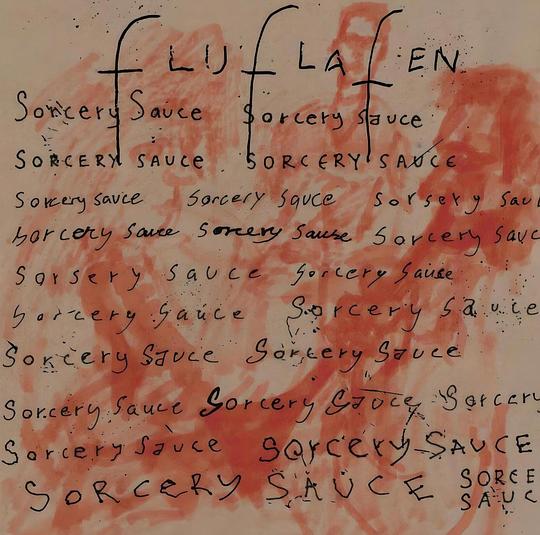 fLUfLAfEN
Sorcery Sauce Sorcery Sauce
SORCERY SAUCE SORCERY SAUCE
Sorcery sauce Sorcery Sauce Sorsery Sau
Sorcery Sauce Sorcery Sause Sorcery Sauc
Sorsery Sauce Sorcery Sauce
Sorcery Sauce Sorcery Sauce
Sorcery Sauce Sorcery Sauce
Sorcery Sauce Sorcery Sauce Sorcery
Sorcery Sauce Sorcery SAUCE
SORCERY SAUCE SORCE
SAUC